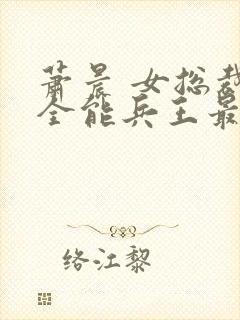 萧晨 女总裁
全能兵王最
络江黎